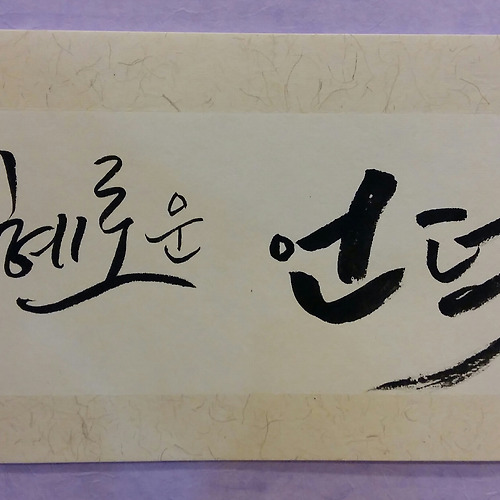 혜로운 언덕